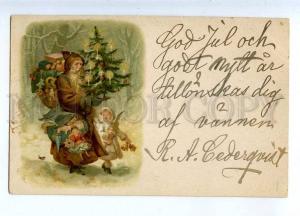 God Jul och
godt nytt år
tillönskas dig
af vännen
R. A. Cederqvist